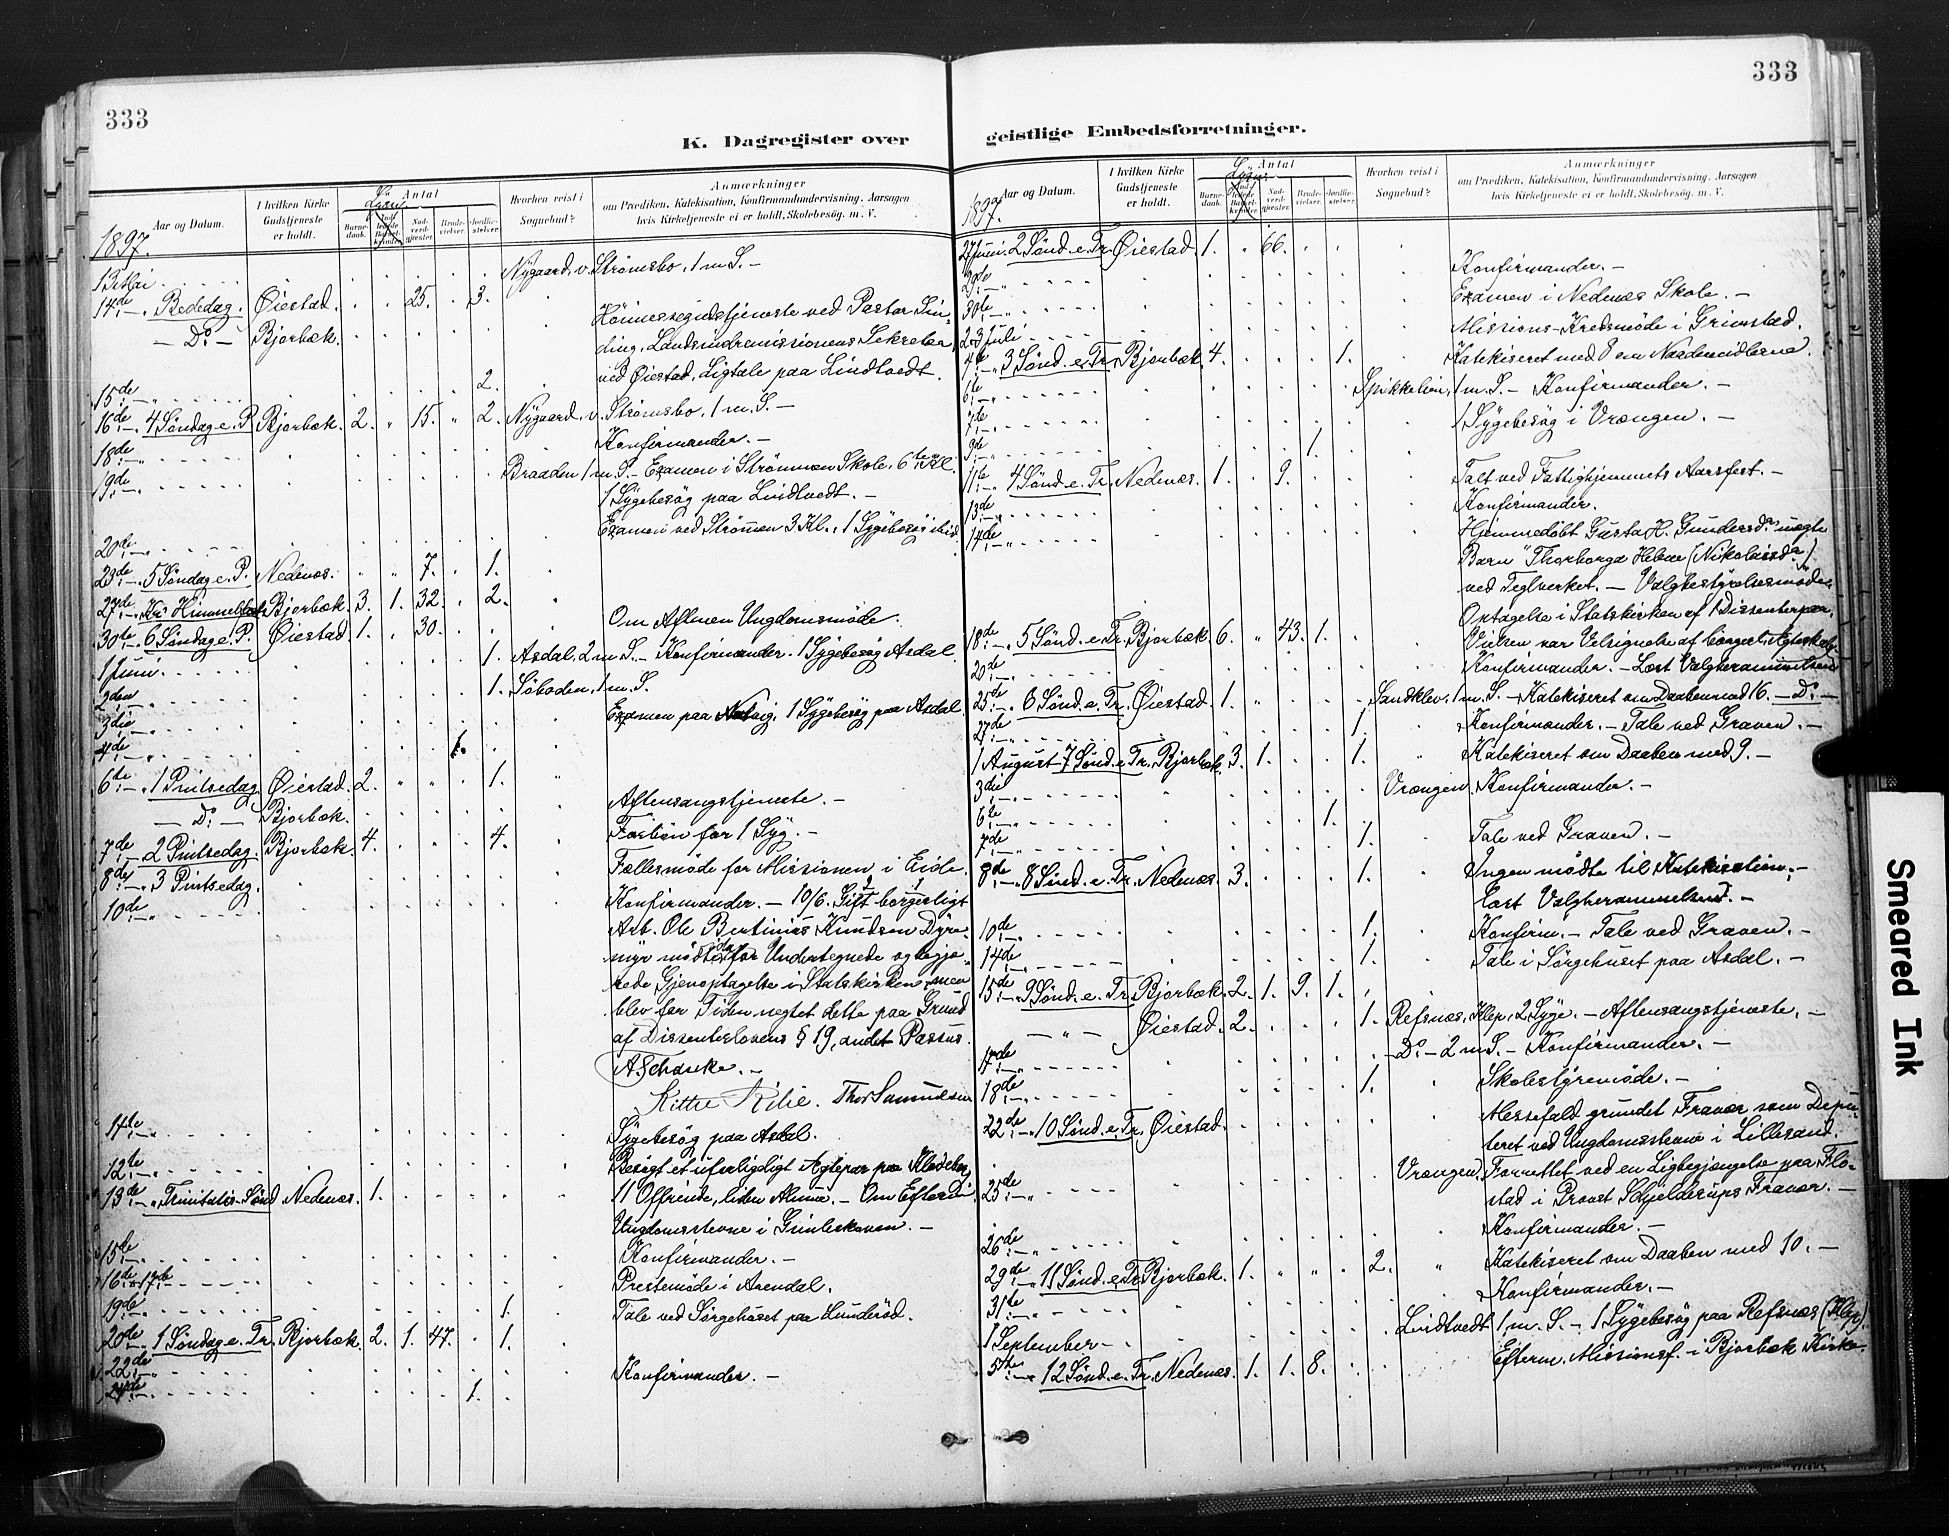 333
333
K. Dagregister over geistlige Embedsforretninger.
Aar og Datum.
I hvilken Kirke Gudstjeneste er holdt.
Antal
Barnedaab.
Nadverdgjester
Brudevielser.
Jordfæstelser.
Hvorhen reist i Sognebud?
Anmærkninger
om Prædiken, Katekisation, Konfirmandundervisning, Aarsagen
hvis Kirketjeneste ei er holdt, Skolebesøg. m. V.
1897.
13 Mai Nygaard v. Strømsbo, 1 m S. –
14de – Bededag. Øiestad. 25. 3.
– Do – Bjorbæk. ved Pastor Sin-
ding, Landsindremissionens Sekretær
ved Øiestad, Ligtale paa Lindtvedt.
15de 2.
16de – 4 Søndag e. P. Bjorbæk. 2. " 15. " 2. Nygaard, v. Strømsbo, 1 m. S. –
18de Konfirmander. –
19de Braaden 1 m. S. – Examen i Strømmen Skole, 6te Kl.
1 Sygebesøg paa Lindtvedt. –
20de Examen ved Strømmen 3 Kl., 1 Sygebesøg ibid.
23de – 5 Søndag e. P. Nedenæs. " " 7. " 1.
27de – Kr. Himmelfarts Bjorbæk. 3. 1. 32. " 2.
30te – 6 Søndag e. P. Øiestad 1. " 30. Om Aftenen Ungdomsmøde.
1 Juni 1. Asdal, 2 m S. – Konfirmander. 1 Sygebesøg Asdal.
2den 1. Søboden, 1 m. S.
3die Examen paa Natvig, 1 Sygebesøg paa Asdal.
4de 1.
6te – 1 Pintsedag Øiestad. 2. 1.
– Do – Bjorbæk. Aftensangstjeneste. –
7de – 2 Pintsedag. Bjorbæk. 4. 4. Forbøn for 1 Syg. –
8de – 3 Pintsedag. Fællesmøde for Missionen i Eide.
10de Konfirmander. – 10/6. Gift borgerligt
Arb. Ole Bertinius Knudsen Dyre-
myr mødte for Undertegnede og begjæ-
rede Gjenoptagelse i Statskirken, men
blev for Tiden negtet dette paa Grund
af Dissenterlovens § 19, andet Passus.
A. Schanke. –
Thor Samuelsen
11te Sygebesøg paa Asdal.
12te Besøgt et uforligeligt Ægtepar paa
13de – Trinitatis Sønd Nedenæs. 1. 11 Offrende, liden Almue. – Om Efterm.
Ungdomsstevne i
15de Konfirmander. –
16de – 17de Prestemøde i Arendal.
19de 1. Tale ved Sørgehuset paa Lunderød.
20de – 1 Søndag e. Tr. Bjorbæk. 2. 1. 47. 1.
22de Konfirmander. –
24de 1.
Aar og Datum.
I hvilken Kirke Gudstjeneste er holdt.
Antal
Barnedaab.
Nadverdgjester
Brudevielser.
Jordfæstelser.
Hvorhen reist i Sognebud?
Anmærkninger
om Prædiken, Katekisation, Konfirmandundervisning, Aarsagen
hvis Kirketjeneste ei er holdt, Skolebesøg. m. V.
1897.
27 Juni. 2 Sønd. e. Tr. Øiestad. 1. " 66.
29de Konfirmander. –
30te Examen i Nedenæs Skole. –
2-3 Juli Missions-Kredsmøde i Grimstad.
4de – 3 Sønd. e. Tr. Bjorbæk. 4. 1. Katekiseret med 8 om Naademidlerne.
6te 1 m. S. – Konfirmander. –
7de 1 Sygebesøg i Vrængen. –
9de 1.
11te – 4 Sønd. e. Tr. Nedenæs. 1. 9. Talt ved Fattighjemmets Aarsfest. –
13de Konfirmander.
14de Hjemmedøbt Gusta H. Gundersdr uægte
Barn "Thorborga Helene (Nikolaisdr)
ved Teglverket. – Valgbestyrelsesmøde.
Optagelse i Statskirken af 1 Dissenterpar.
18de – 5 Sønd. e. Tr. Bjorbæk. 6. " 43. 1. Vielsen var Velsignelse af borgerl. Ægteskab.
20de Konfirmander. – Læst Valgkrammelsen
25de – 6 Sønd. e. Tr. Øiestad. 1. Sandklev. 1 m. S. – Katekiseret om Daaben med 16. – Do –
27de 1. Konfirmander. – Tale ved Graven. –
1 August – 7 Sønd. e. Tr. Bjorbæk. 3. 1. 1. Katekiseret om Daaben med 9. –
3die Vrængen. Konfirmander. –
6te 1.
7de 1. Tale ved Graven. –
8de – 8 Sønd. e. Tr. Nedenæs. 3. 1. Ingen mødte til Katekisation, –
læst Valgkrammelsen. –
10de 1. Konfirm. – Tale ved Graven. –
14de 1. Tale i Sørgehuset paa Asdal. –
15de – 9 Sønd. e. Tr. Bjorbæk. 2. 1. 9. 1.
– " – Øiestad. 2. 1. Refsnæs, Klep, 2 Syge. – Aftensangstjeneste. –
17de – Do – 2 m S. – Konfirmander. –
18de 1. Skolestyremøde. –
22de – 10 Sønd. e. Tr. Øiestad. Messefald grundet Fravær som Depu-
teret ved Ungdomsstevne i Lillesand.
25de Vrængen. Forrettet ved en Ligbegjængelse paa Flo-
stad i Provst Schjelderups Fravær. –
26de Konfirmander. –
29de – 11 Sønd. e. Tr. Bjorbæk. 1. 2. Katekiseret om Daaben med 10. –
31te Konfirmander. –
1 September – Lindtvedt 1 m. S. – 1 Sygebesøg paa Refsnæs (Klep).
5te – 12 Sønd. e. Tr. Nedenæs. 1. 1. 8. Efterm. Missionsf. i Bjorbæk Kirke.
Smeared Ink